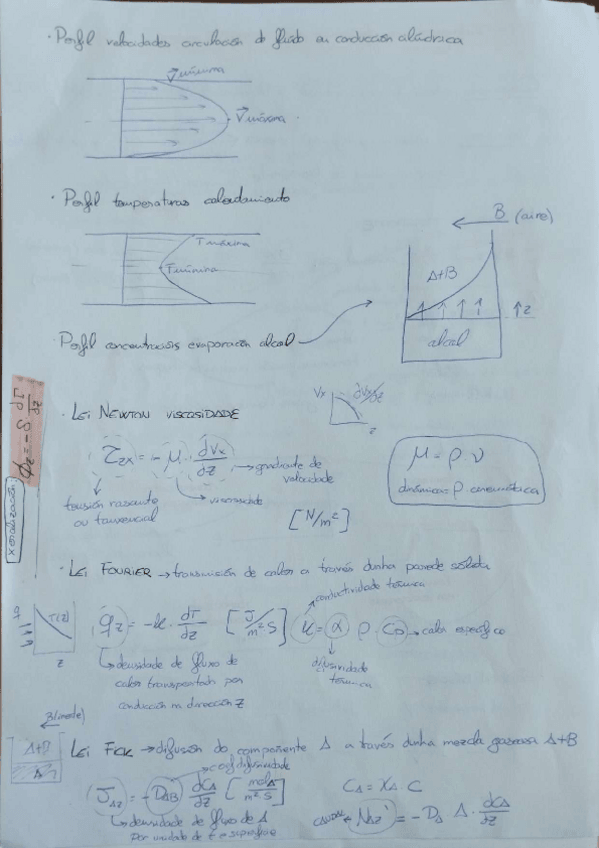 · Perfil velocidades circulación de fluido en conducción cilíndrica
V mínima
V máxima
· Perfil temperaturas calentamiento
T máxima
T mínima
B (aire)
A+B
↑z
alcol
· Perfil concentracións evaporación alcol
· LEI NEWTON VISCOSIDADE
Vx
dVx/dz
z
τzx = -μ · dVx/dz → gradiente de velocidade
viscosidade
tensión rasante
ou tanxencial
[N/m²]
μ = ρ ν
dinámica = ρ cinemática
xeralización
φz = -δ dΓ/dz
· LEI FOURIER → transmisión de calor a través dunha parede sólida
conductividade térmica
T(z)
z
qz = -k · dT/dz [J/m² s] k = α ρ Cp → calor específico
densidade de fluxo de
calor transportada por
conducción na dirección z
difusividade
térmica
A+B
A
LEI FICK → difusión do compoñente A a través dunha mezcla gasosa A+B
coef difusividade
JAz = -DAB dCA/dz [mol A/m² s]
CA = XA · C
densidade de fluxo de A
por unidade de t e superficie
caudal NAz = -DA A · dCA/dz